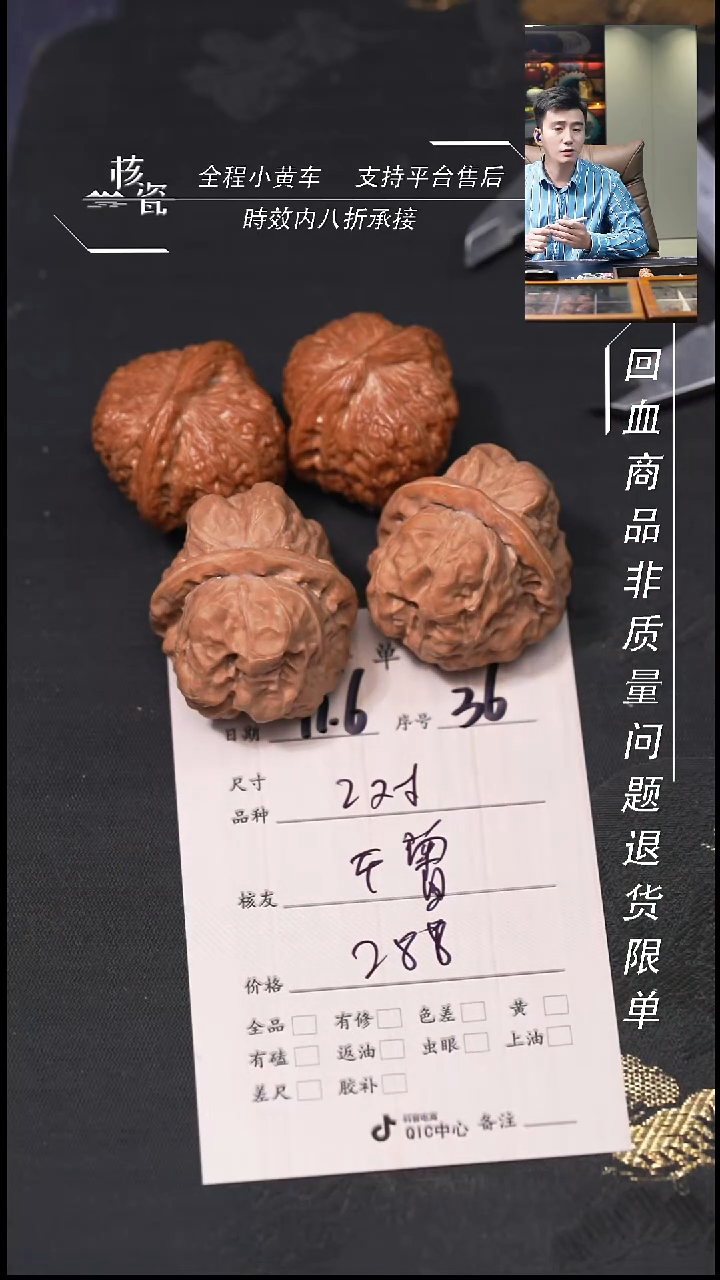 核瓷
全程小黄车 支持平台售后
時效内八折承接
回血商品非质量问题退货限单
单
日期 11.6 序号 36
尺寸
品种 22寸
核友
价格 288
全品 有修 色差 黄
有磕 返油 虫眼 上油
差尺 胶补
QIC中心 备注